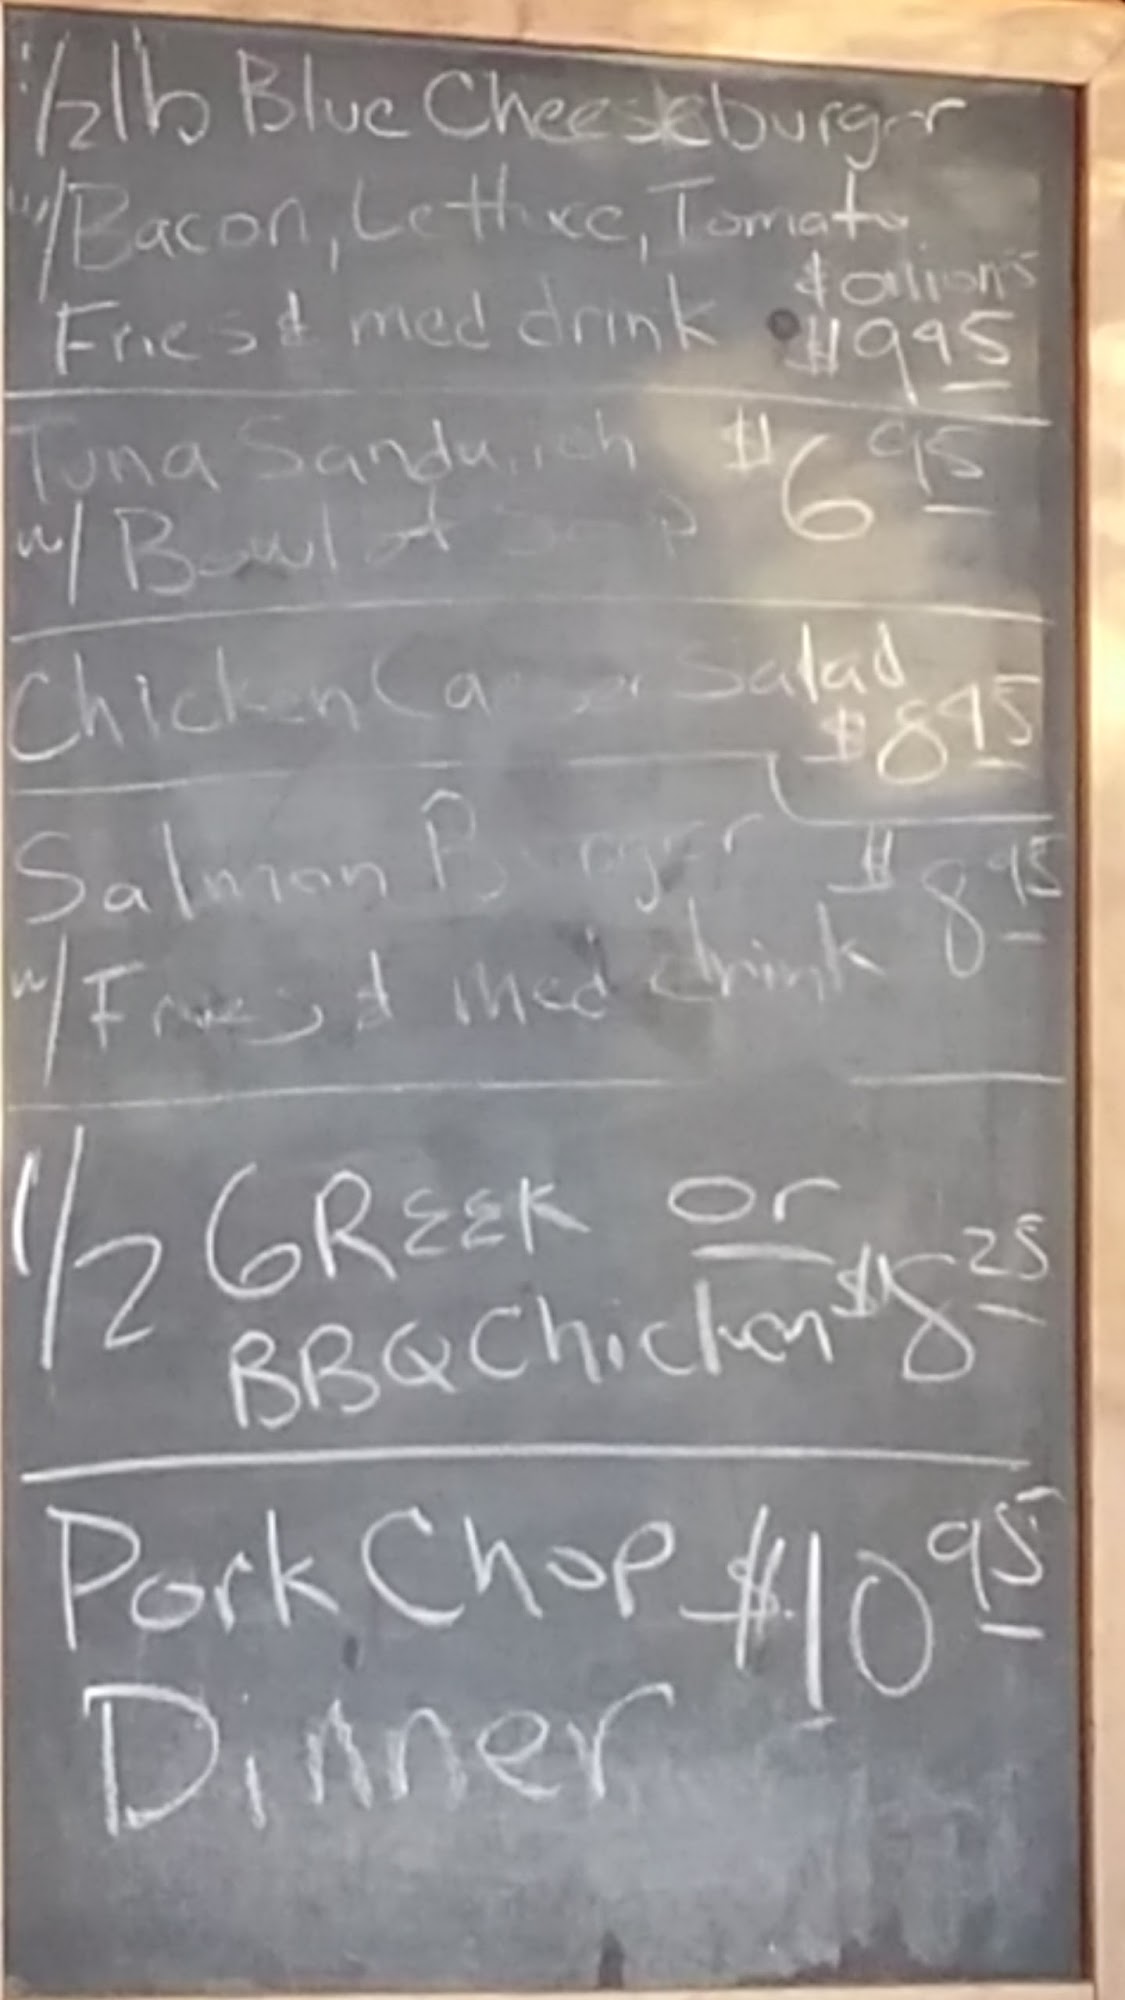 1/2 lb Blue Cheeseburger
w/ Bacon, Lettuce, Tomato
& onions
Fries & med drink $9.95
Tuna Sandwich $6.95
w/ Bowl of Soup
Chicken Caesar Salad
$8.95
Salmon Burger $8.95
w/ Fries & med drink
1/2 GREEK or
BBQ Chicken $8.25
Pork Chop $10.95
Dinner